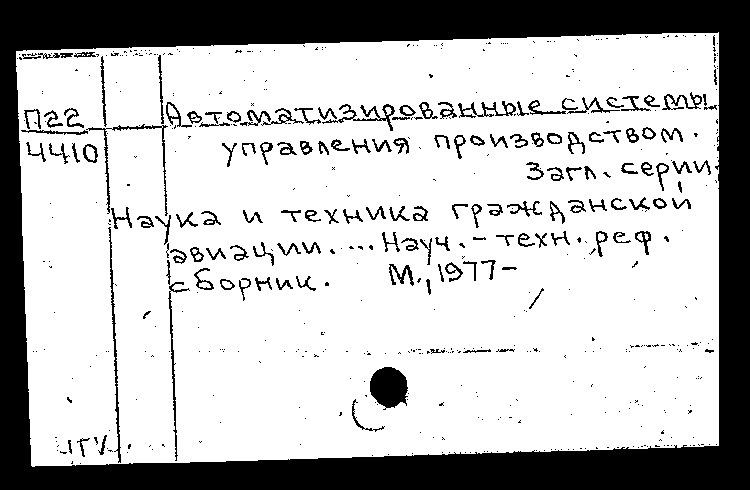 П22 Автоматизированные системы
4410 управления производством.
Загл. серии.
Наука и техника гражданской
авиации. ... Науч. - техн. реф.
сборник. М., 1977-